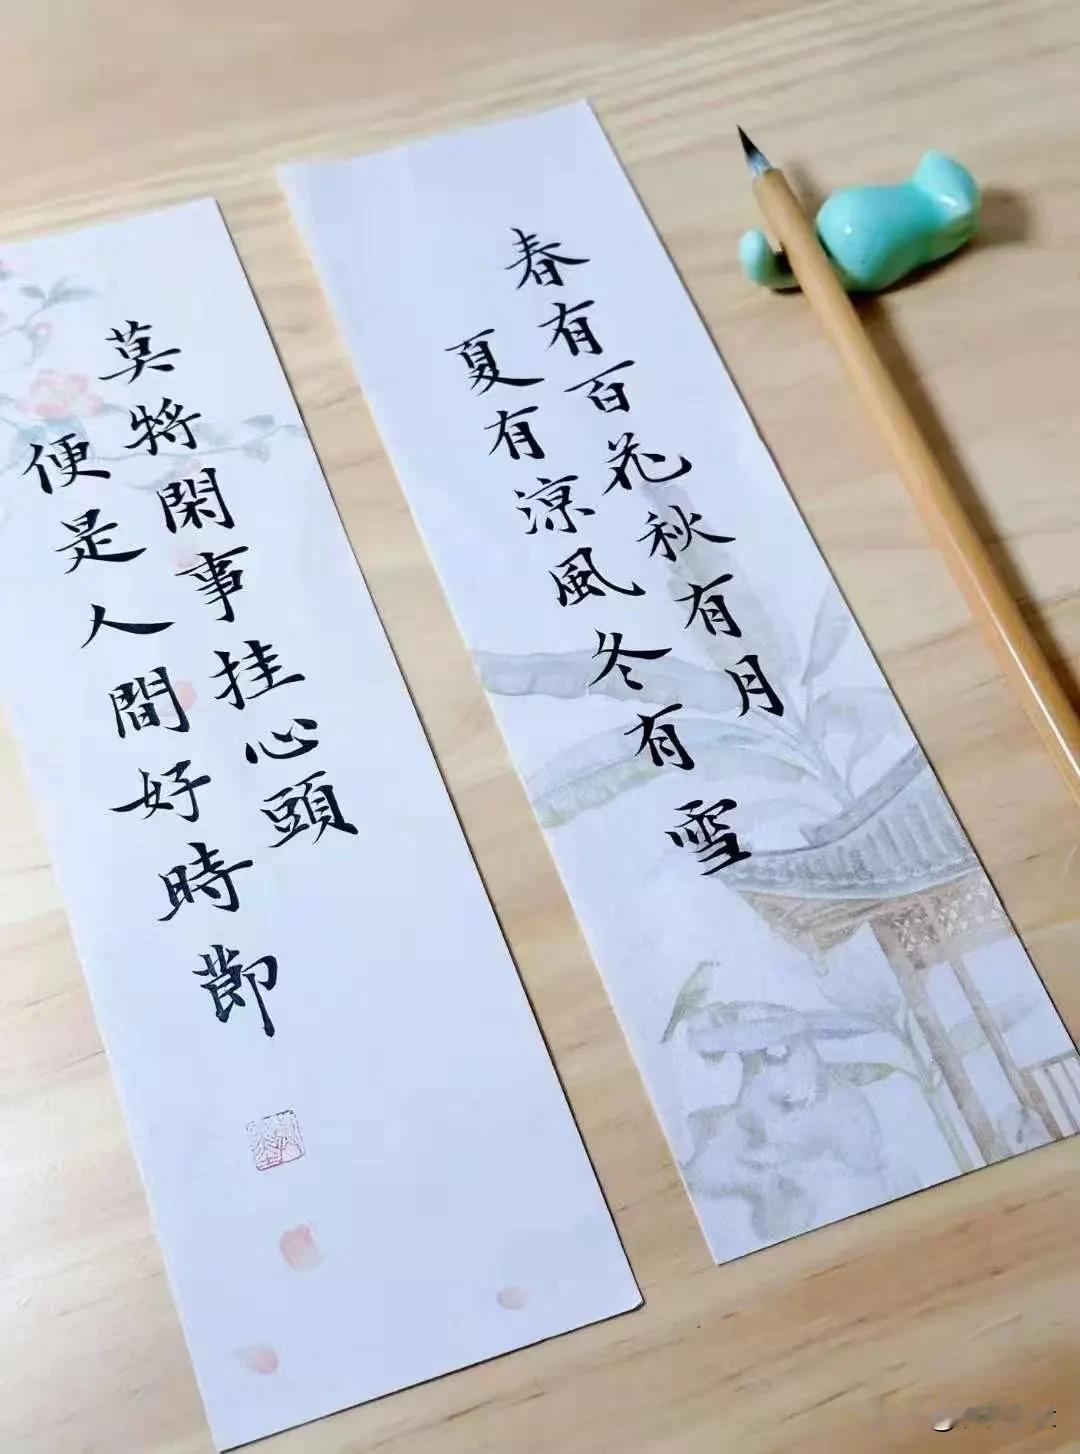 春有百花秋有月
夏有涼風冬有雪
莫將閑事挂心頭
便是人間好時節